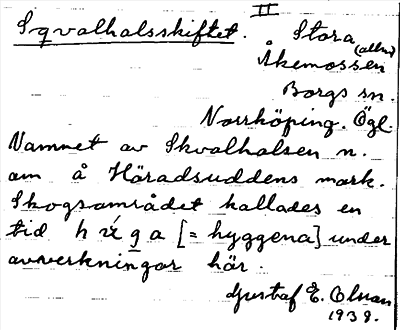 II
Sqvalhalsskiftet. Stora (allm)
Åkemossen
Borgs sn.
Norrköping. Ögl.
Namnet av Skvalhalsen n.
om å Häradsuddens mark.
Skogsområdet kallades en
tid [= hyggena] under
avverkningar här.
Gustaf E. Olsson
1938.